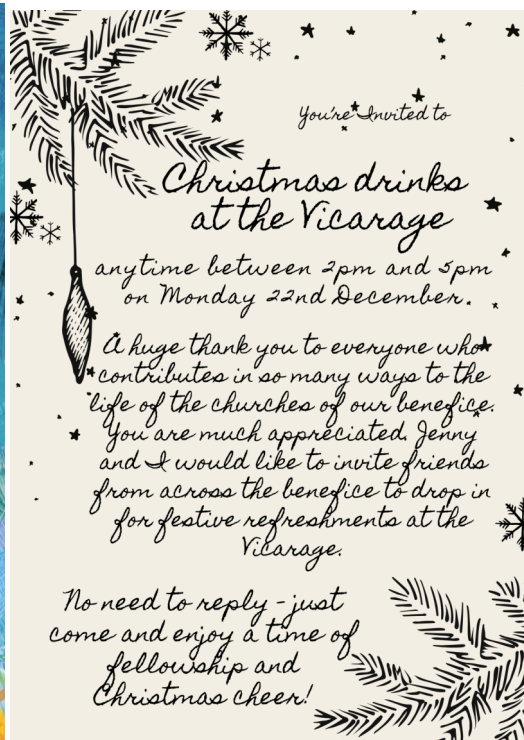 You're Invited to
Christmas drinks
at the Vicarage
anytime between 2pm and 5pm
on Monday 22nd December.
A huge thank you to everyone who
contributes in so many ways to the
life of the churches of our benefice.
You are much appreciated. Jenny
and I would like to invite friends
from across the benefice to drop in
for festive refreshments at the
Vicarage.
No need to reply - just
come and enjoy a time of
fellowship and
Christmas cheer!